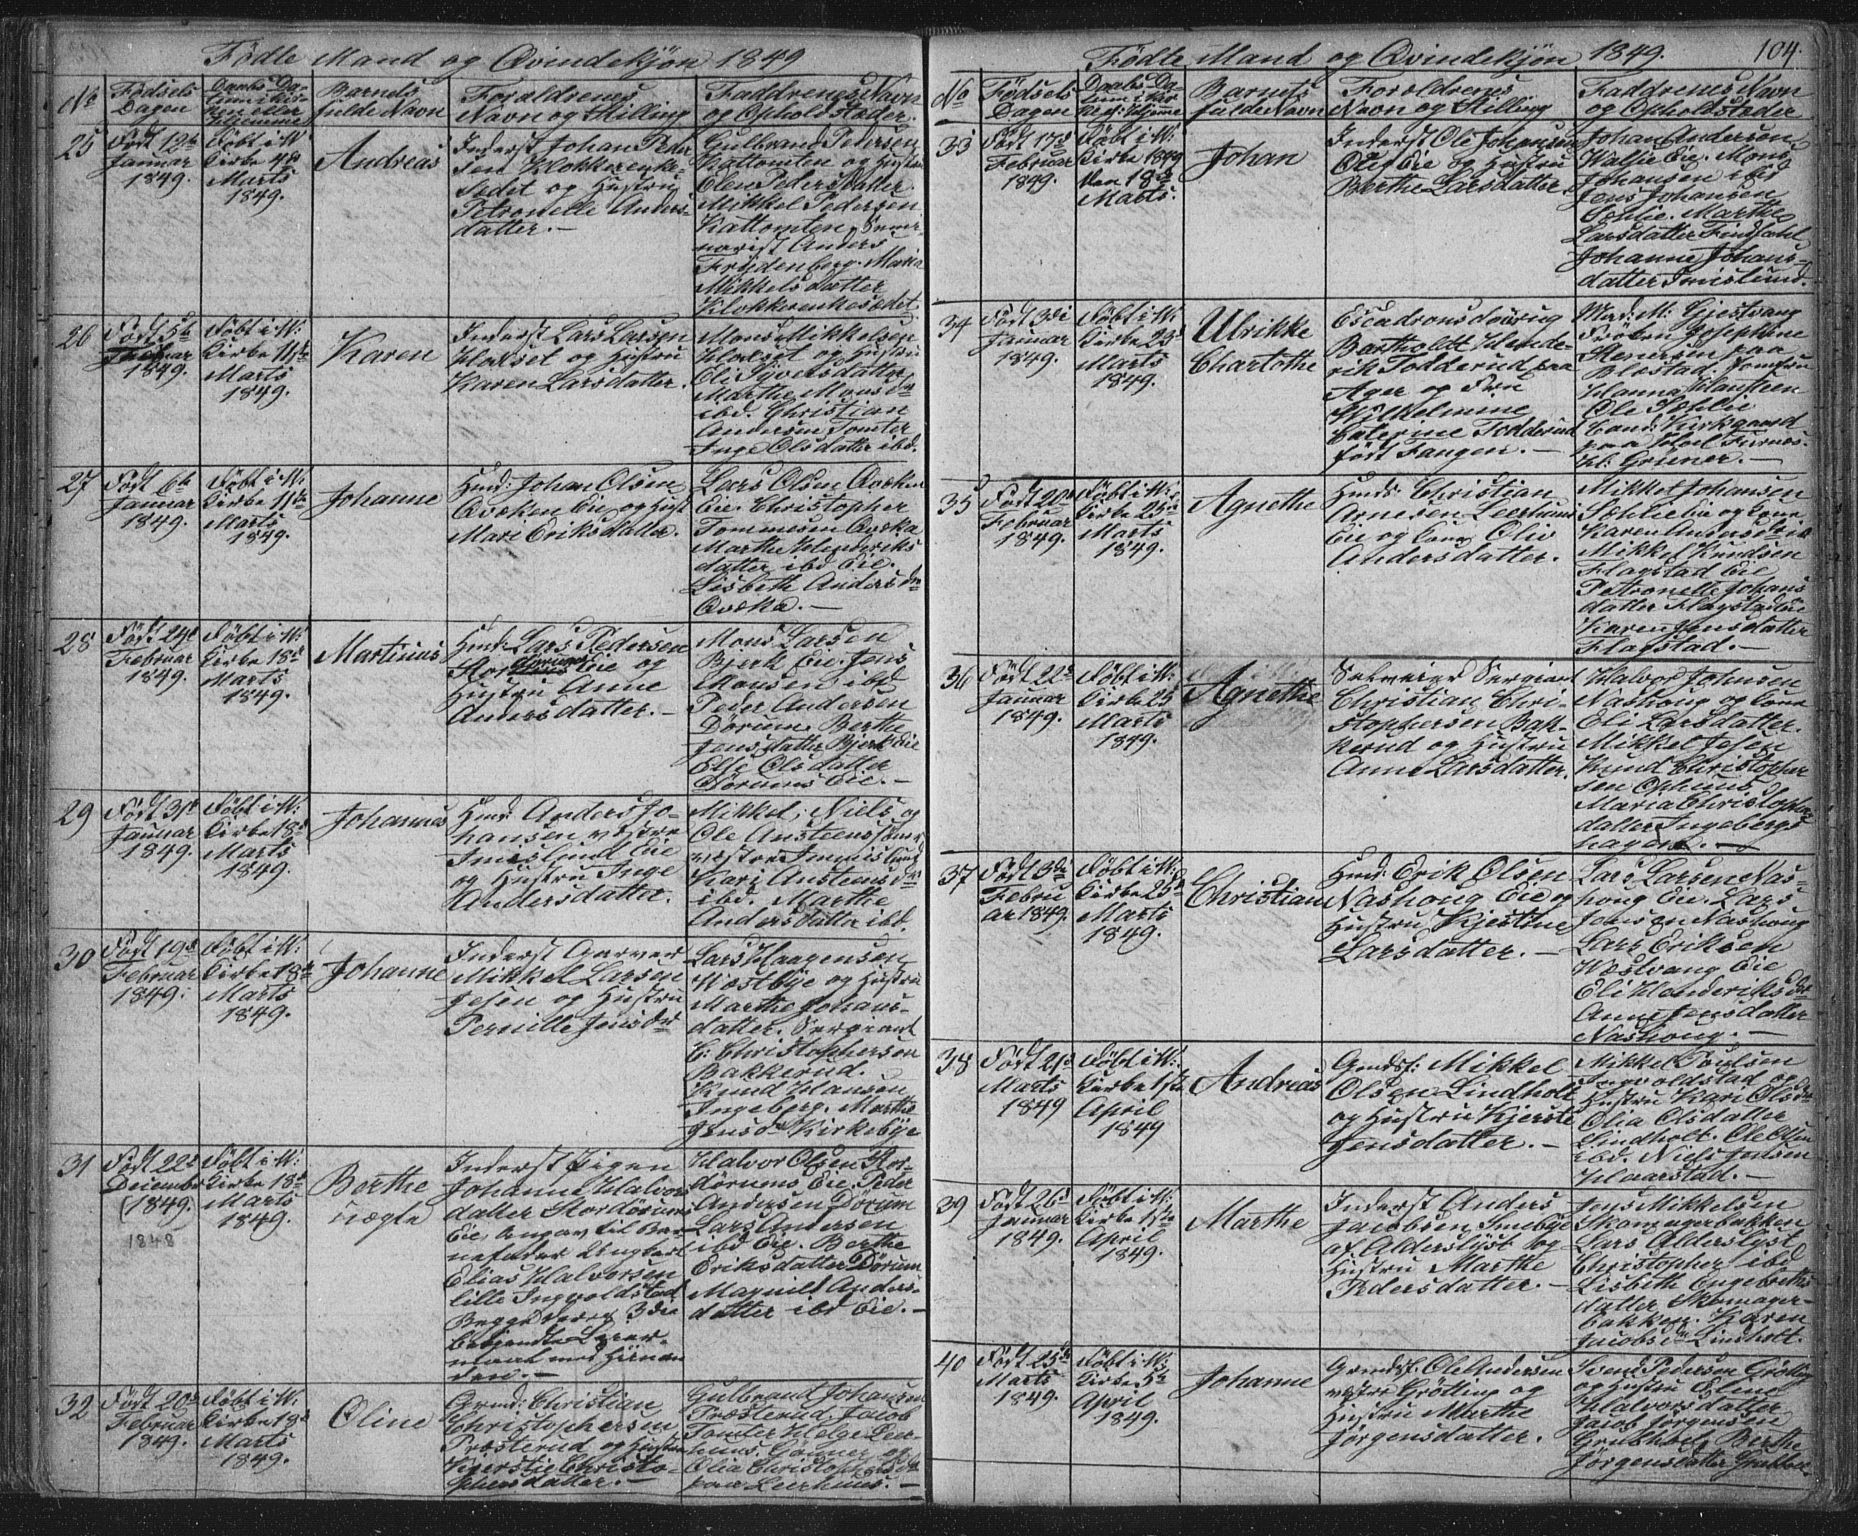 Födte Mand og Qvindekjön 1849
No
Födsels
Dagen
Daabs-Da-
Barnets
fulde Navn
Forældrenes
Navn og Stilling
Faddrenes Navn
og Opholdsteder.
25
Född 12te
Januar
1849.
Döbt i V:
Kirke 4de
Marts
1849.
Andreas
Inderst Johan Peder
sen Klokkerenke-
sedet og Hustru
Petronelle Anders-
datter.—
Gulbrand Pedersen
Kattomten og Hustru
Elen Pedersdatter
Mikkel Pedersen
Kattomten. Semi-
narist Anders
Frydenberg. Maria
Mikkelsdatter
Klokkerenkesædet.
26
Född 5te
Januar
1849.
Döbt i V:
Kirke 11te
Marts
1849.
Karen
Inderst Lars Larsen
og Hustru
Karen Larsdatter.
Mons Mikkelsen
og Hustru
Eli Syversdatter
Marthe Monsdr
ibd. Christian
Andersen Tomter
Inge Olsdatter ibd.
27
Född 6te
Januar
1849.
Döbt i V:
Kirke 11te
Marts
1849.
Johanne
Husd: Johan Olsen
Qvæken Eie og Hust
Mari Eriksdatter.
Lars Olsen Qvæken
Eie. Christopher
Tommesen Qvæka
Marthe Henderiks
datter ibd Eie.
Lisbeth Andersdr
Qvæka.—
28
Född 24de
Februar
1849.
Döbt i V:
Kirke 18de
Marts
1849.
Martinus
Husd: Lars Pedersen
Eie og
Hustru Anne
Andersdatter.—
Mons Larsen
Bjerk Eie. Jens
Monsen ibd
Peder Andersen
Dörum. Berthe
Jensdatter Bjerk Eie
Else Olsdatter
Dörums Eie.—
29
Född 31te
Januar
1849.
Döbt i V:
Kirke 18de
Marts
1849.
Johannes
Husd: Anders Jo-
hansen vestre
Imeslund Eie
og Hustru Inge
Andersdatter.
Mikkel, Niels og
Ole Austeensönner
vestre Immislund
Kari Austeensdr
ibd. Marthe
Andersdatter ibd.
30
Född 19de
Februar
1849.
Döbt i V:
Kirke 18de
Marts
1849.
Johanne
Inderst Garver
Mikkel Larsen
Jesen og Hustru
Pernille Jensdr
Lars Haagensen
Westbye og Hustru
Marthe Johans-
datter. Sergeant
C: Christophersen
Bakkerud.
Knud Hansen
Ingeberg. Marthe
Jensdr Kirkebye
31
Född 22de
December
(1849.)
1848
Döbt i V:
Kirke 18de
Marts
1849.
Berthe
uægte
Inderst Pigen
Johanne Halvors
datter Stordörums
Eie. Angav til Bar-
nefader Ungkarl
Elias Halvorsen
lille Ingvoldstad
Begge deres 3die
bekjendte Leier-
maal med hinan
den.—
Halvor Olsen Stor-
dörums Eie. Peder
Andersen Dörum
Lars Andersen
ibd Eie. Berthe
Eriksdatter Dörum
Magnild Anders-
datter ibd Eie.—
32
Född 20de
Februar
1849.
Döbt i V:
Kirke 18de
Marts
1849.
Oline
Grmd: Christian
Christophersen
Præsterud og Hustru
Kjersti Christo-
phersdatter.—
Gulbrand Johansen
Præsterud. Jacob
Tomter Helge Leer-
huus. Gunner og
Olia Christophersdr
paa Leerhuus.—
Födte Mand og Qvindekjön 1849.
104.
No
Födsels
Dagen
Daabs-Da-
Barnets
fulde Navn
Forældrenes
Navn og Stilling
Faddrenes Navn
og Opholdsteder
33
Född 17de
Februar
1849.
Döbt i V:
Kirke 1849
den 18de
Marts.
Johan
Inderst Ole Johansen
Eie og Hustru
Berthe Larsdatter
Johan Andersen
Eie. Mons
Johansen ibd
Jens Johansen
Marthe
Larsdatter
Johanne Johans-
datter Imislund.
34
Född 3die
Januar
1849.
Döbt i V:
Kirke 25de
Marts
1849.
Ulrikke
Charlothe
Bartholdt Hende-
rik Todderud paa
Ager og Fru
Wilhelmine
Caterine Todderud
föd Fangen.—
Mad: M: Gjestvang
Fröken Josephine
Stenersen paa
Blæstad. Jomfru
Hanna Clausen
Ole Sæhlie
Cand: Kirkgaard
paa Hoel Furnes.
Hr: Gruner.—
35
Född 20de
Februar
1849.
Döbt i V:
Kirke 25de
Marts
1849.
Agnethe
Husd: Christian
Arnesen Leerhuus
Eie og Kone Olia
Andersdatter.
Mikkel Johansen
Sæhlie Eie og Kone
Karen Andersdr ibd
Mikkel Knudsen
Flagstad Eie
Petronelle Johans
datter Flagstad Eie
Karen Jensdatter
Flagstad.—
36
Född 22de
Januar
1849.
Döbt i V:
Kirke 25
Marts
1849.
Agnethe
Selveier Sergiant
Christian Chri-
stophersen Bak-
kerud og Hustru
Anne Larsdatter.
Halvor Johnsen
Nashoug og Kone
Eli Larsdatter.
Mikkel Jesen
Knud Christopher
sen Opheus.
Maria Christopher
datter Ingebergs
hagen.—
37
Född 3die
Febru
ar 1849.
Döbt i V:
Kirke 25de
Marts
1849.
Christian
Husd: Erik Olsen
Nashoug Eie og
Hustru Kjestine
Larsdatter.—
Lars Larsen Nas-
houg Eie. Lars
Jensen Nashoug
Lars Eriksen
Westvang Eie
Eli Henderiksdr
Anne Jensdatter
Nashoug.—
38
Född 21de
Marts
1849
Döbt i V:
Kirke 1ste
April
1849
Andreas
Grmdsk: Mikkel
Olsen Lindholt
og Hustru Kjersti
Jensdatter.—
Mikkel Poulsen
Ingvoldstad og
Hustru Kari Olsdr
Olia Olsdatter
Lindholt. Ole Olsen
ibd. Niels Jensen
Haarstad.—
39
Född 26de
Januar
1849.
Döbt i V:
Kirke 1ste
April
1849.
Marthe
Inderst Anders
Jacobsen Smebye
af Alderslyst og
Hustru Marthe
Pedersdatter.—
Jens Mikkelsen
Skomagerbakken
Lars Alderslyst
Christopher ibd
Lisbeth Engebrets
datter Skomager-
bakken. Karen
Jacobsdr Lindholt.
40
Född 25de
Marts
1849.
Döbt i V:
Kirke 5te
April
1849.
Johanne
Grmdsk: Ole Andersen
vestre Grötting og
Hustru Marthe
Jörgensdatter.
Svend Pedersen Grötting
og Hustru Elene
Halvorsdatter
Jacob Jörgensen
Grubhoel. Berthe
Jörgensdatter Grubhoel